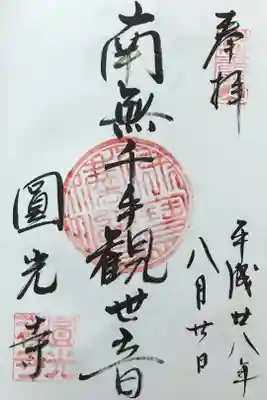 奉拝
平成廿八年
八月廿日
南無千手観世音
圓光寺